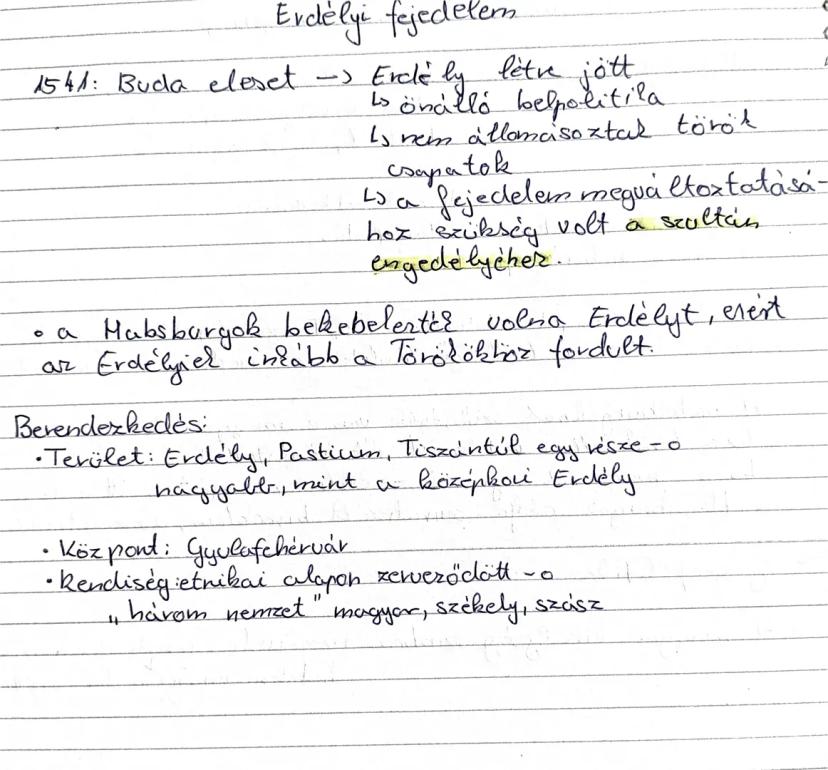 Erdélyi fejedelem
1541: Buda eleset -> Erdély létre jött
↳ önálló belpolitika
↳ nem állomásoztak török
csapatok
↳ a fejedelem megváltoztatásá-
hoz szükség volt a szultán
engedélyéhez.
• a Habsburgok bekebelezték volna Erdélyt, ezért
az Erdélyiek inkább a Törökökhöz fordult.
Berendezkedés:
• Terület: Erdély, Pastium, Tiszántúl egy része -o
nagyabb, mint a középkori Erdély
• Központ: Gyulafehérvár
• Rendiség: etnikai alapon szerveződött -o
„három nemzet" magyar, székely, szász